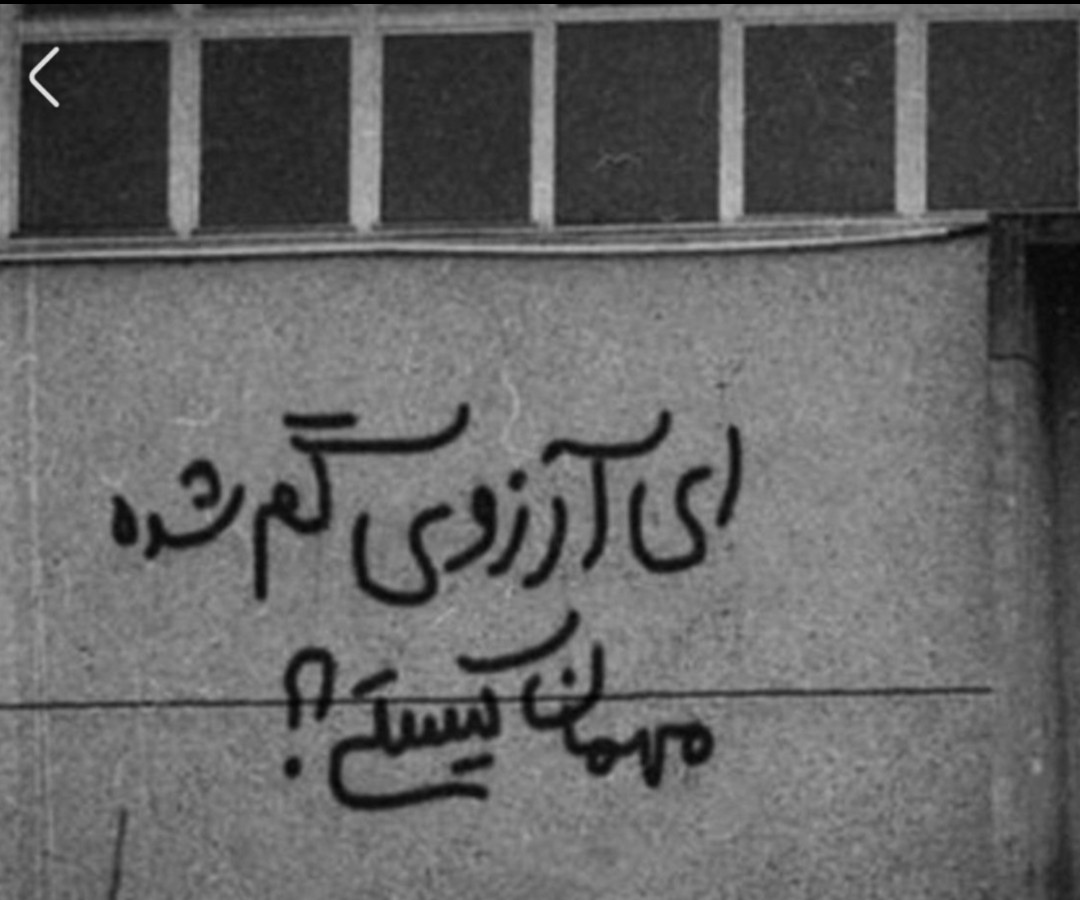 ای آرزوی گم شده
مهمان کیستی؟